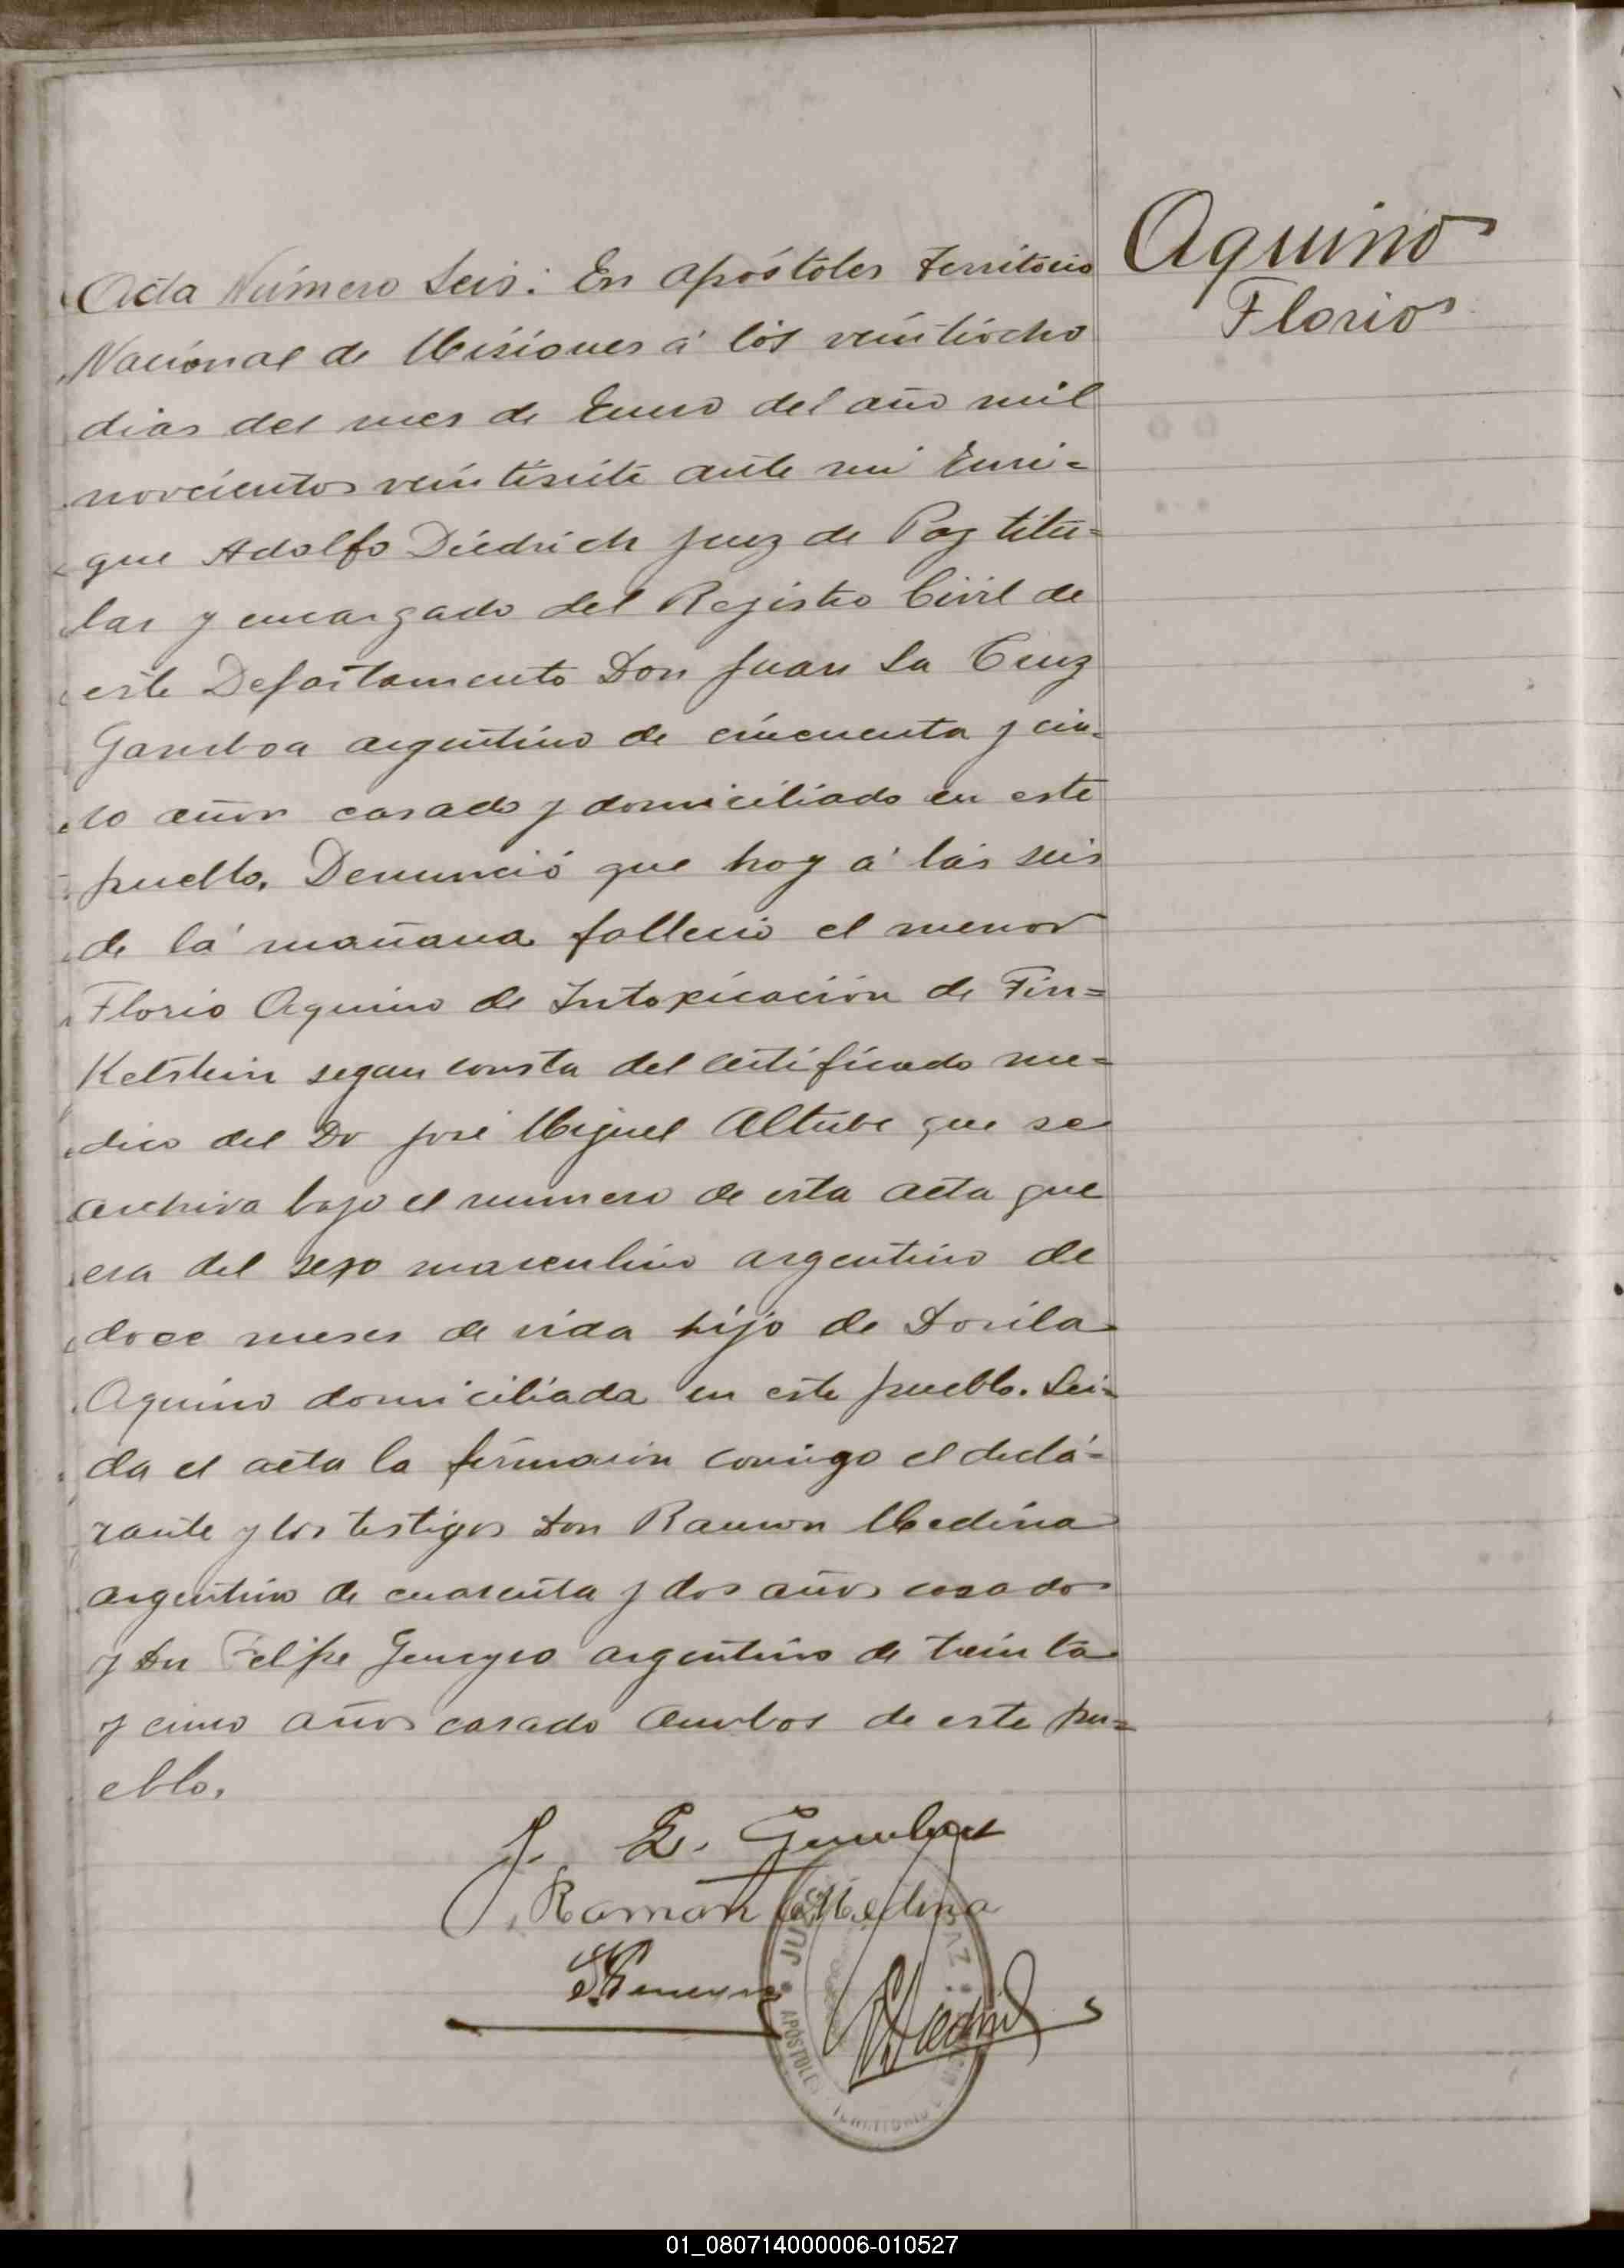 Aquino
Florio
Acta Número Seis: En Apóstoles Territorio
Nacional de Misiones á los veintiocho
dias del mes de Enero del año mil
novecientos veintisiete ante mi Enri=
que Adolfo Diedrich Juez de Paz titu=
lar y encargado del Registro Civil de
este Departamento Don Juan La Cruz
Gamboa argentino de cincuenta y cin=
co años casado y domiciliado en este
pueblo. Denunció que hoy á las seis
de la mañana fallecio el menor
Florio Aquino de Intoxicación de Fin=
Kelstein segun consta del certificado me=
dico del Dr José Miguel Altube que se
archiva bajo el numero de esta acta que
era del sexo masculino argentino de
doce meses de vida hijo de Dorila
Aquino domiciliada en este pueblo. Lei=
da el acta la firmaron conmigo el decla=
rante y los testigos Don Ramon Medina
argentino de cuarenta y dos años casado
y Dn Felipe Geneyro argentino de treinta
y cinco años casado ambos de este pu=
eblo.
J. L. Gamboa
Ramón Medina
Geneyro
JUZ PAZ
APÓSTOLES
TERRITORIO
01_080714000006-010527